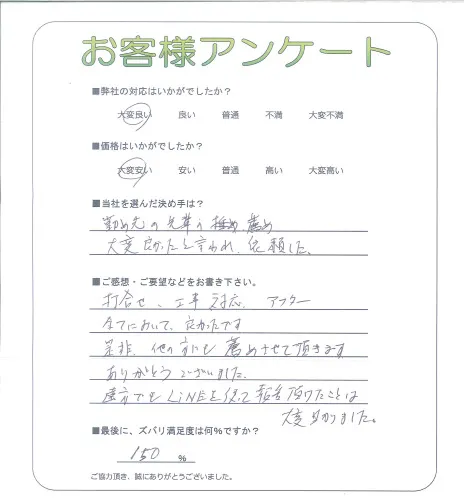 お客様アンケート
■弊社の対応はいかがでしたか？
大変良い 良い 普通 不満 大変不満
■価格はいかがでしたか？
大変安い 安い 普通 高い 大変高い
■当社を選んだ決め手は？
勤め先の先輩の 薦め
大変良かったと言われ、依頼した。
■ご感想・ご要望などをお書き下さい。
打合せ、工事対応、アフター
全てにおいて、良かったです
是非、他の方にも薦めさせて頂きます
ありがとうございました。
遠方でもLINEを使って報告頂けたことは
大変助かりました。
■最後に、ズバリ満足度は何％ですか？
150 %
ご協力頂き、誠にありがとうございました。